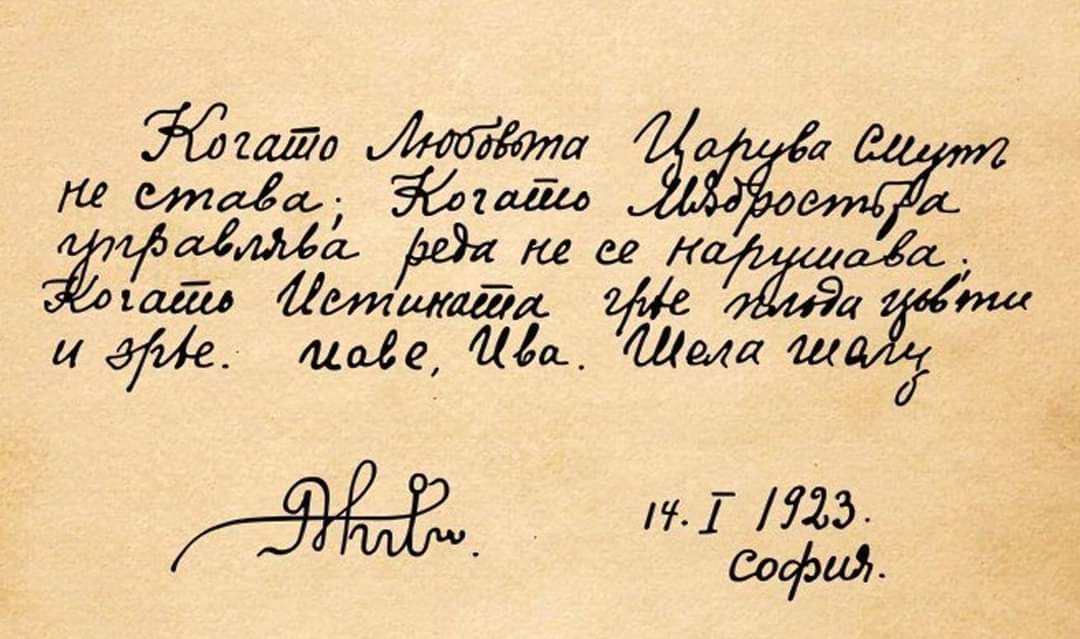 Когато Любовьта Царува Смутъ
не става; Когато Мѫдростьта
управлява реда не се нарушава;
Когато Истината грѣе плода цъвти
и зрѣе. иаве, Ива. Шела шалу
14. I 1923.
София.